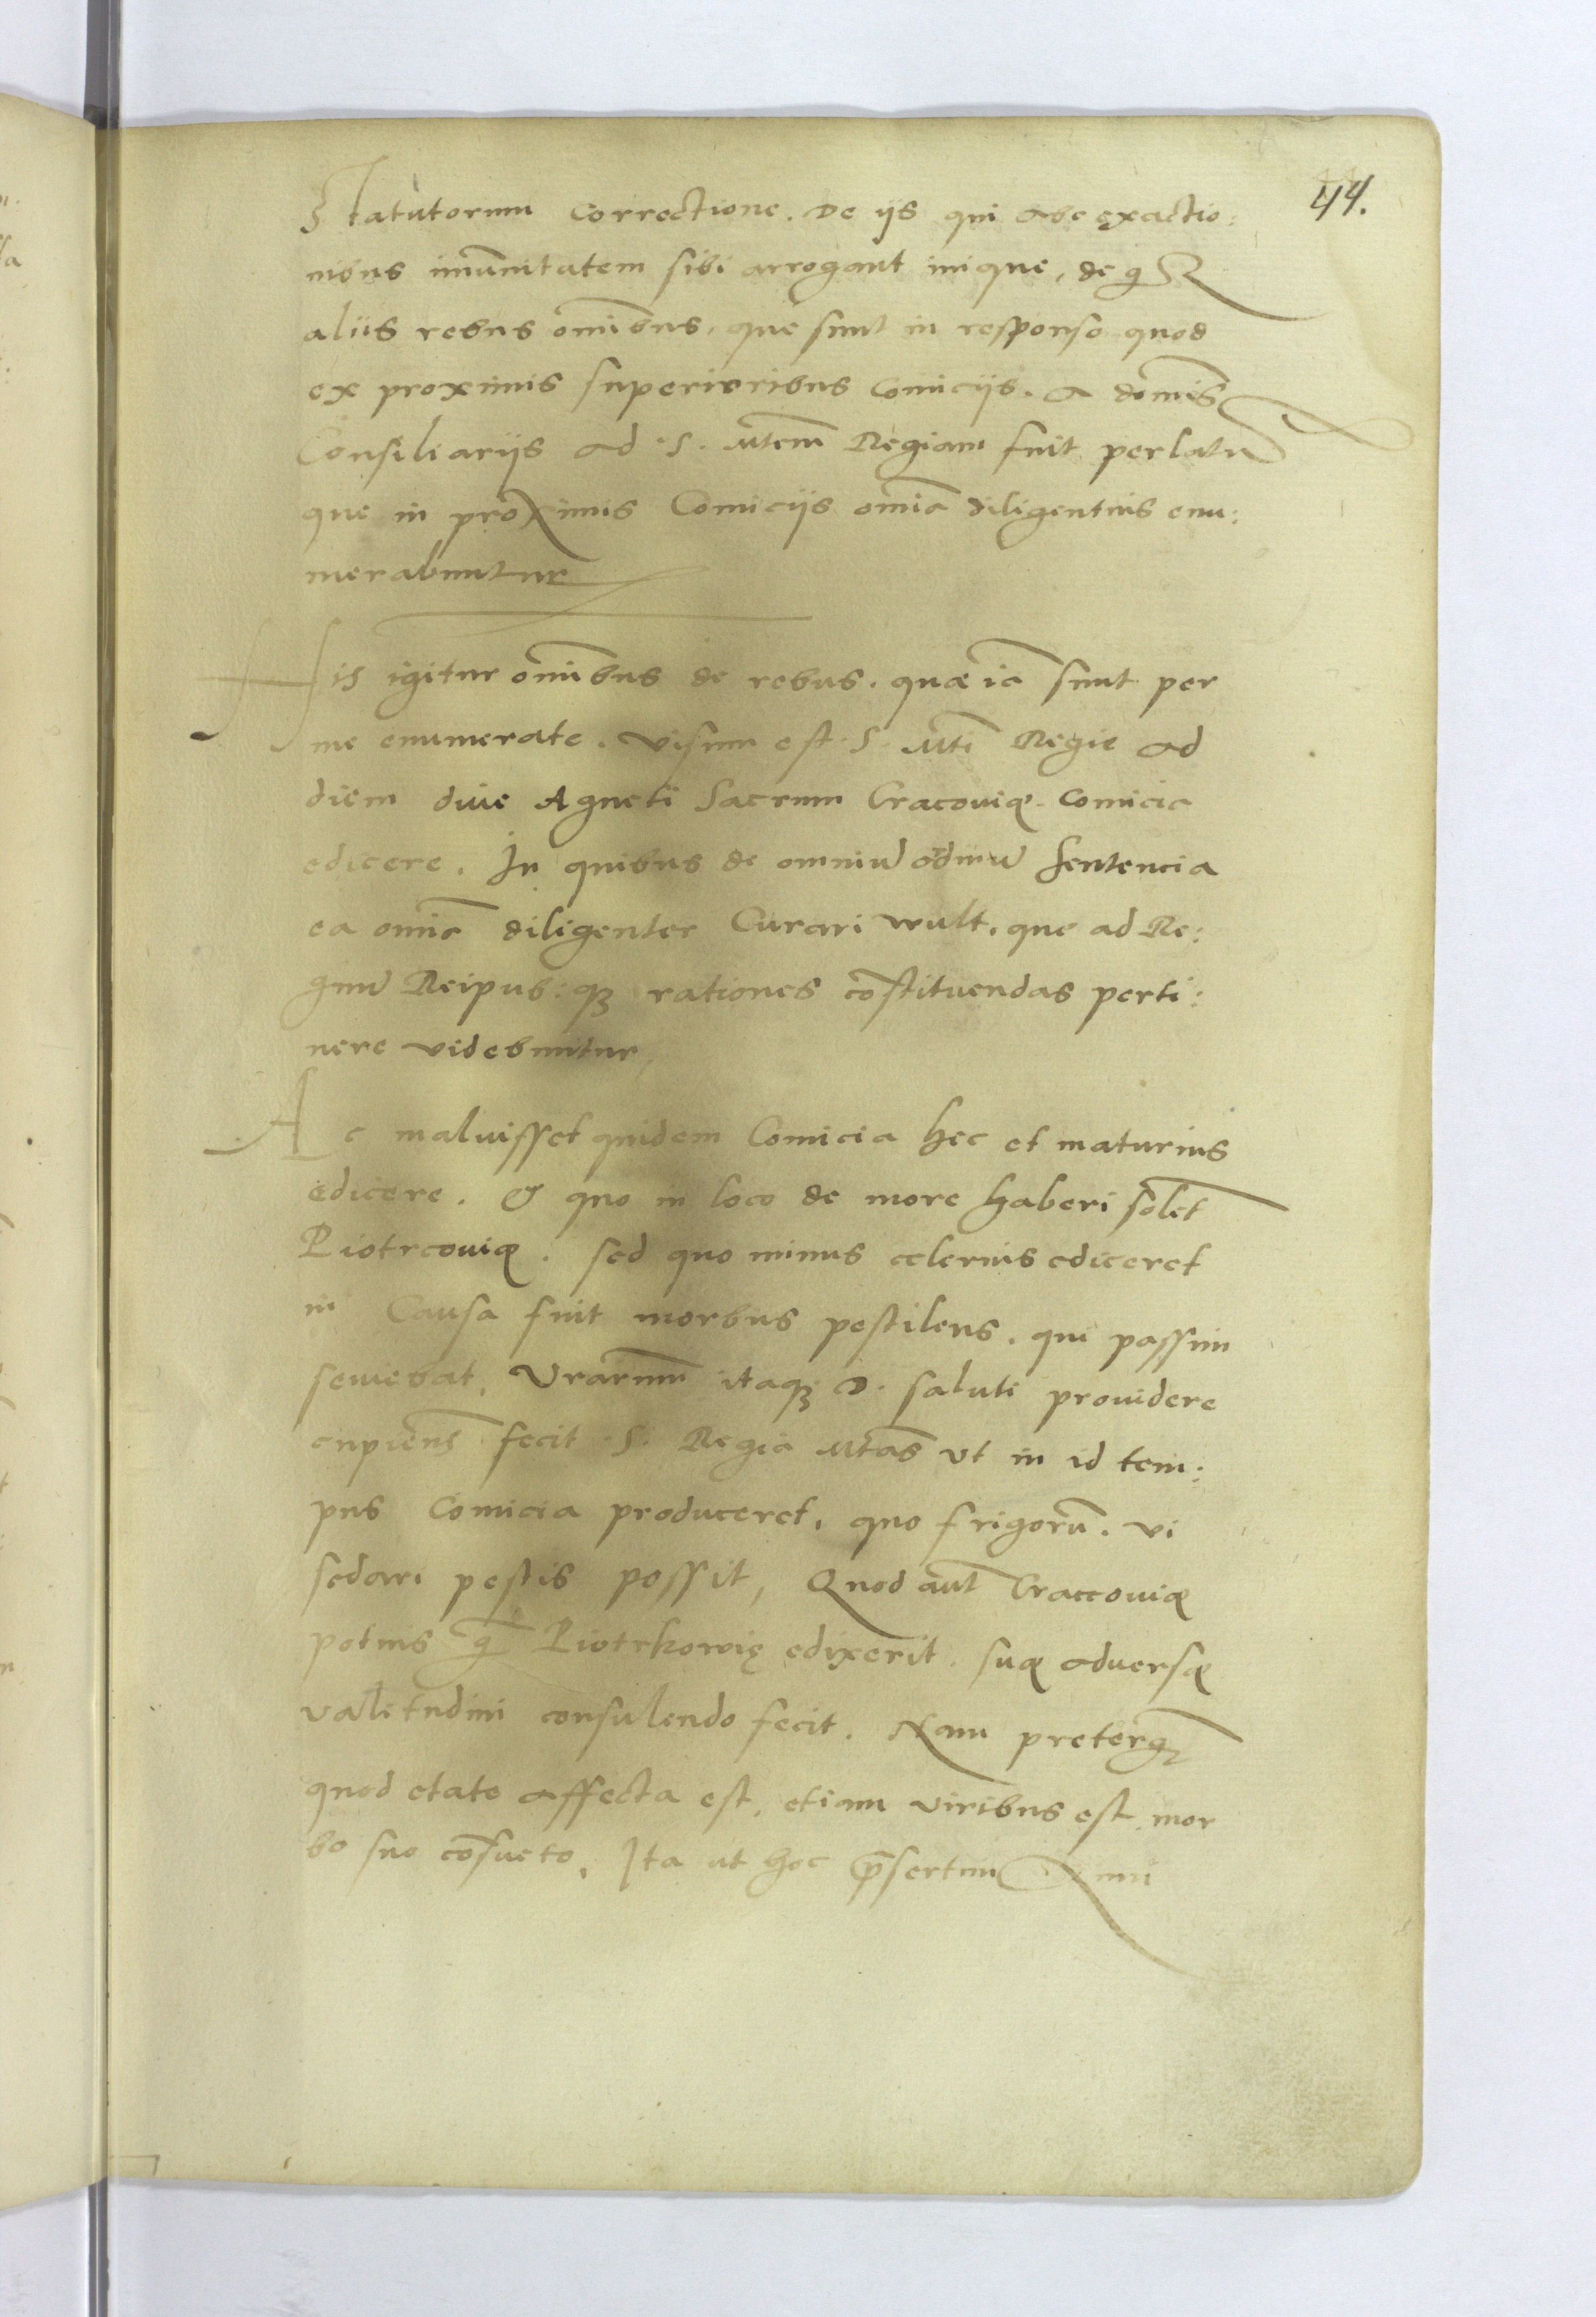 44.
Statutorum correctione. De ijs qui abe exactio:
nibus imūnitatem sibi arrogant inique, de q̄
aliis rebus omībus, que sunt in responso quod
ex proximis superioribus Comicijs. a domīs
Consiliarijs ad S. Mtem̄ Regiam fuit perlatū
que in proximis Comicijs omīa diligentius enu:
merabuntur
His igitur omībus de rebus. quæ iā sunt per
me enumerate. visum est S. Mti Regie ad
diem diue Agneti Sacrum Cracouię. Comicia
edicere. In quibus de omniū ordinū sentencia
ea omīa diligenter Curari wult. que ad Re:
gnū Reipub: qȝ rationes cōstituendas perti:
nere videbuntur,
Ac maluisset quidem Comicia hec et maturius
edicere. & quo in loco de more haberi solet
Piotrcouię. sed quo minus celerius ediceret
in Causa fuit morbus pestilens. qui passim
seuiebat, Vrarum̄ itaqȝ D. saluti prouidere
cupiens fecit S. Regia Mtas̄ vt in id tem:
pus Comicia produceret, quo frigorū. vi
sedari pestis possit, Quod aut̄ Craccouię
potius q̄ Piotrkowię edixerit. suę aduersę
valitudini consulendo fecit. Nam preterq̄
quod etate affecta est, etiam viribus est mor
bo suo cōsueto, Ita ut hoc p̄sertim